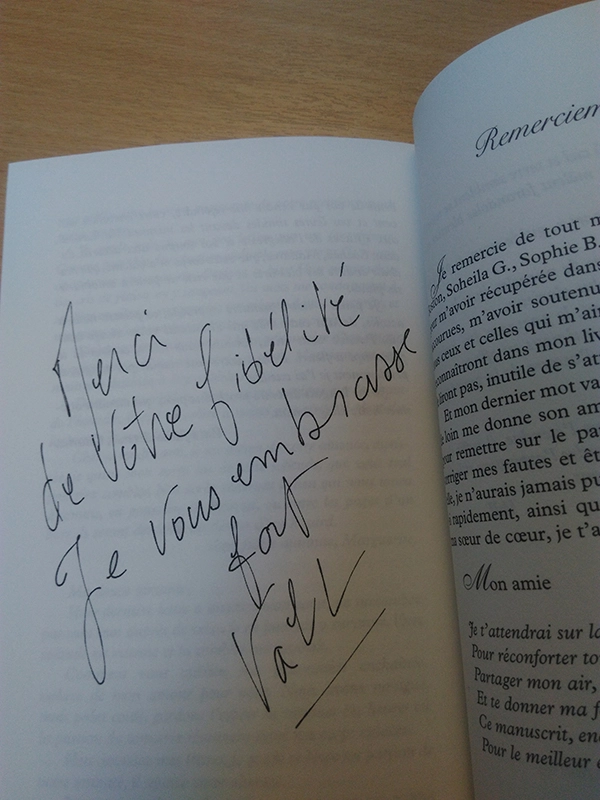 Merci
de votre fidélité
Je vous embrasse
fort
Remerciem
Je remercie de tout m
Soheila G., Sophie B.
m'avoir récupérée dans
m'avoir soutenu
ceux et celles qui m'ai
dans mon liv
pas, inutile de s'att
Et mon dernier mot va
loin me donne son am
remettre sur le pa
mes fautes et êt
je n'aurais jamais pu
rapidement, ainsi qu
sœur de cœur, je t'a
Mon amie
Je t'attendrai sur la
Pour réconforter to
Partager mon air,
Et te donner ma f
Ce manuscrit, en
Pour le meilleur e